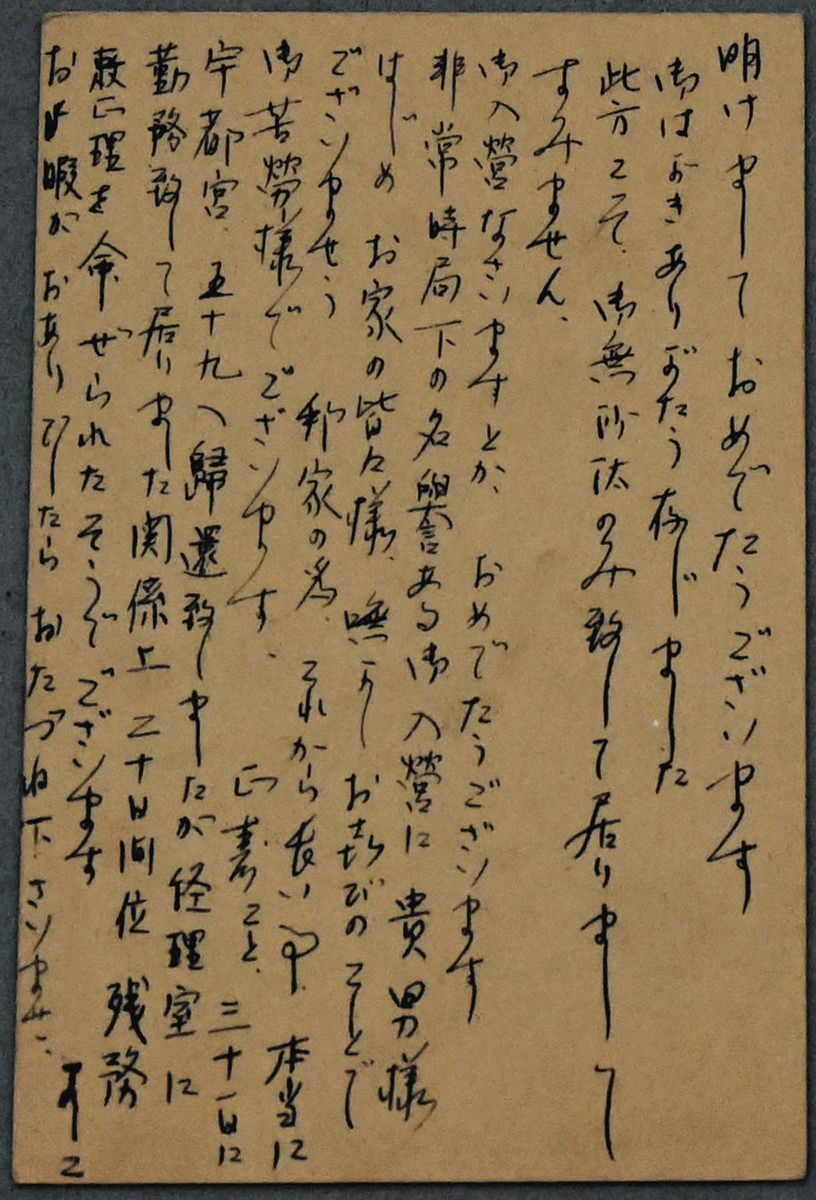 明けましておめでたうございます
御はがきありがたう存じました
此方こそ、御無沙汰のみ致して居りまして
すみません、
御入營なさいますとか、おめでたうございます
非常時局下の名譽ある御入營に貴男様
はじめお家の皆々様、嘸かしお喜びのことで
ございませう 邦家の為、これから長い間、本当に
御苦勞様でございます、
正壽こと、三十一日に
宇都宮、五十九へ歸還致しましたが経理室に
勤務致して居りました関係上二十日間位残務
整理を命ぜられたそうでございます
お暇がおありでしたらおたづね下さいませ、